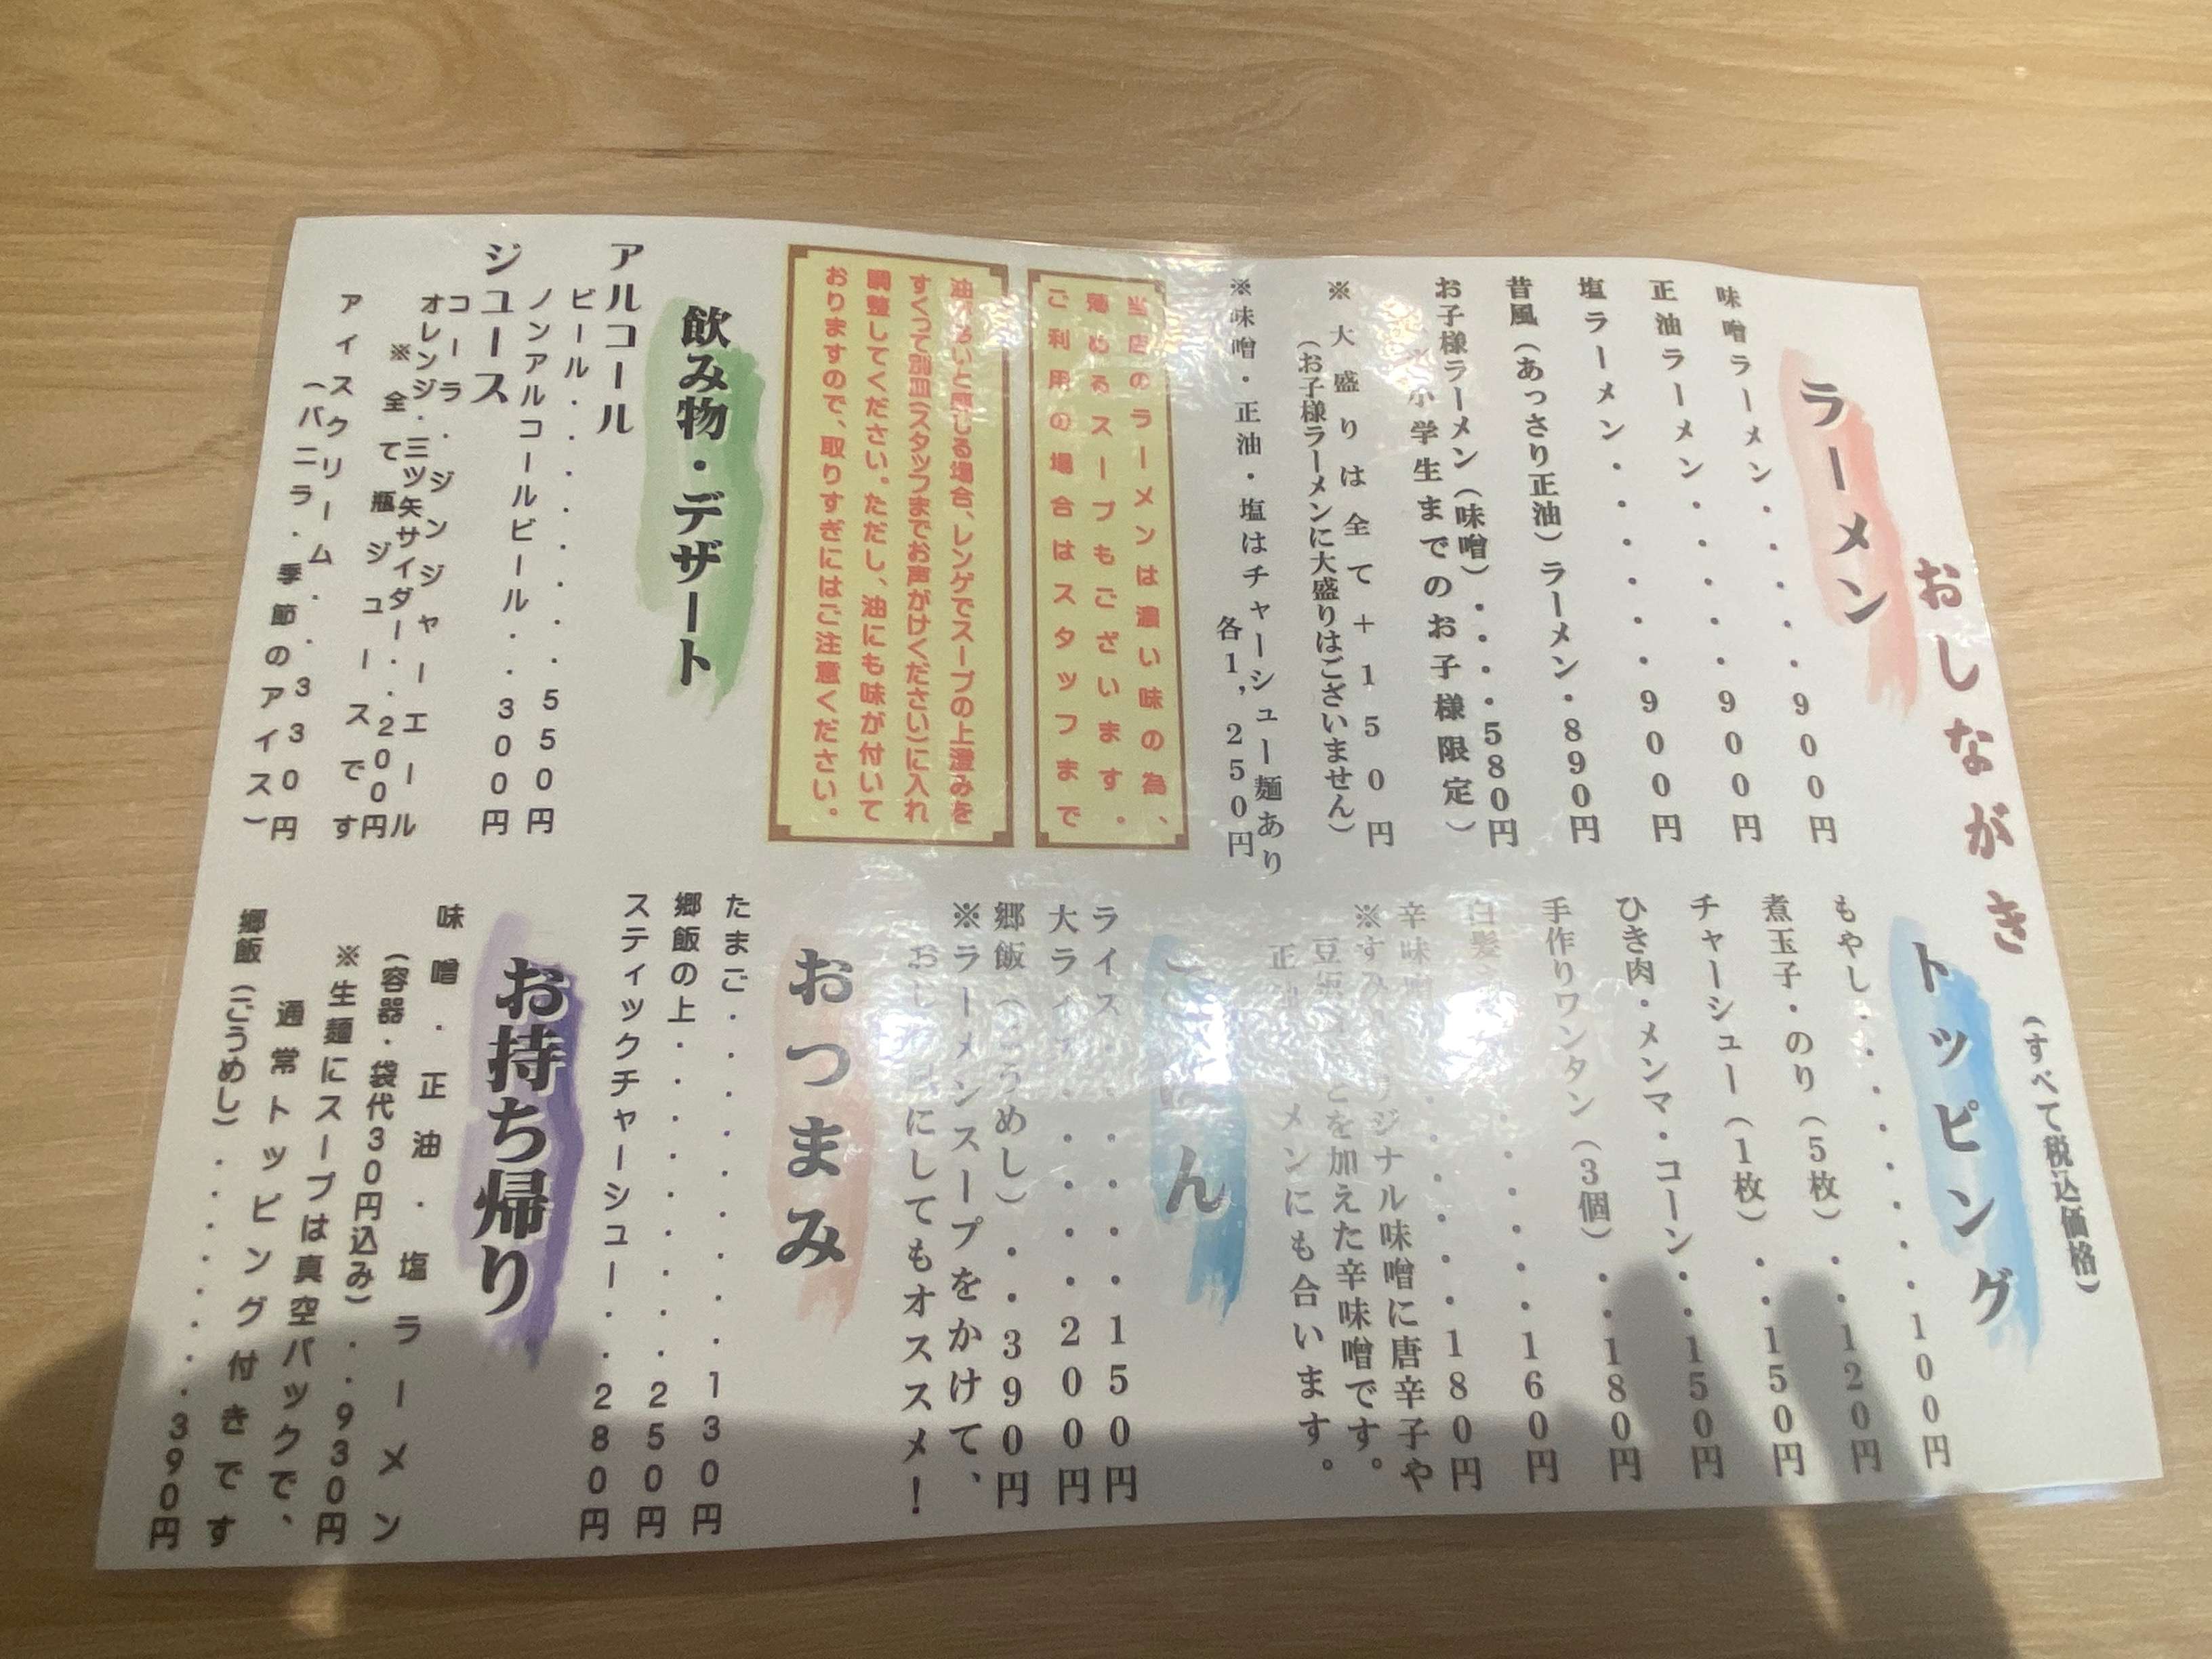 おしながき
(すべて税込価格)
ラーメン
味噌ラーメン・・・・・900円
正油ラーメン・・・・・・900円
塩ラーメン・・・・・・900円
昔風(あっさり正油)ラーメン・890円
お子様ラーメン(味噌)・・・・580円
小学生までのお子様限定)
※大盛りは全て+150円
(お子様ラーメンに大盛りはございません)
※味噌・正油・塩はチャーシュー麺あり
各1,250円
当店のラーメンは濃い味の為、
薄めるスープもございます。
ご利用の場合はスタッフまで
油っぽいと感じる場合、レンゲでスープの上澄みを
すくって別皿(スタッフまでお声がけください)に入れ
調整してください。ただし、油にも味が付いて
おりますので、取りすぎにはご注意ください。
飲み物・デザート
アルコール
ビール・・・・・・・・550円
ノンアルコールビール・・300円
ジュース
コーラ・ジンジャーエール
オレンジ・三ツ矢サイダー・・200円
※全て瓶ジュースです
アイスクリーム・・330円
(バニラ・季節のアイス)
トッピング
もやし・・・・・・・・100円
煮玉子・のり(5枚)・・120円
チャーシュー(1枚)・・150円
ひき肉・メンマ・コーン・・150円
手作りワンタン(3個)・・180円
白髪・・・・160円
辛味噌・・・・・180円
ジナル味噌に唐辛子や
を加えた辛味噌です。
メンにも合います。
ん
ライス・・・・・150円
大ライス・・・・・200円
郷飯(ごうめし)・・390円
※ラーメンスープをかけて、
にしてもオススメ!
おつまみ
たまご・・・・・・・・130円
郷飯の上・・・・・・・・250円
スティックチャーシュー・・280円
お持ち帰り
味噌・正油・塩ラーメン
(容器・袋代30円込み)・・930円
※生麺にスープは真空パックで、
通常トッピング付きです
郷飯(ごうめし)・・・・・・・・390円